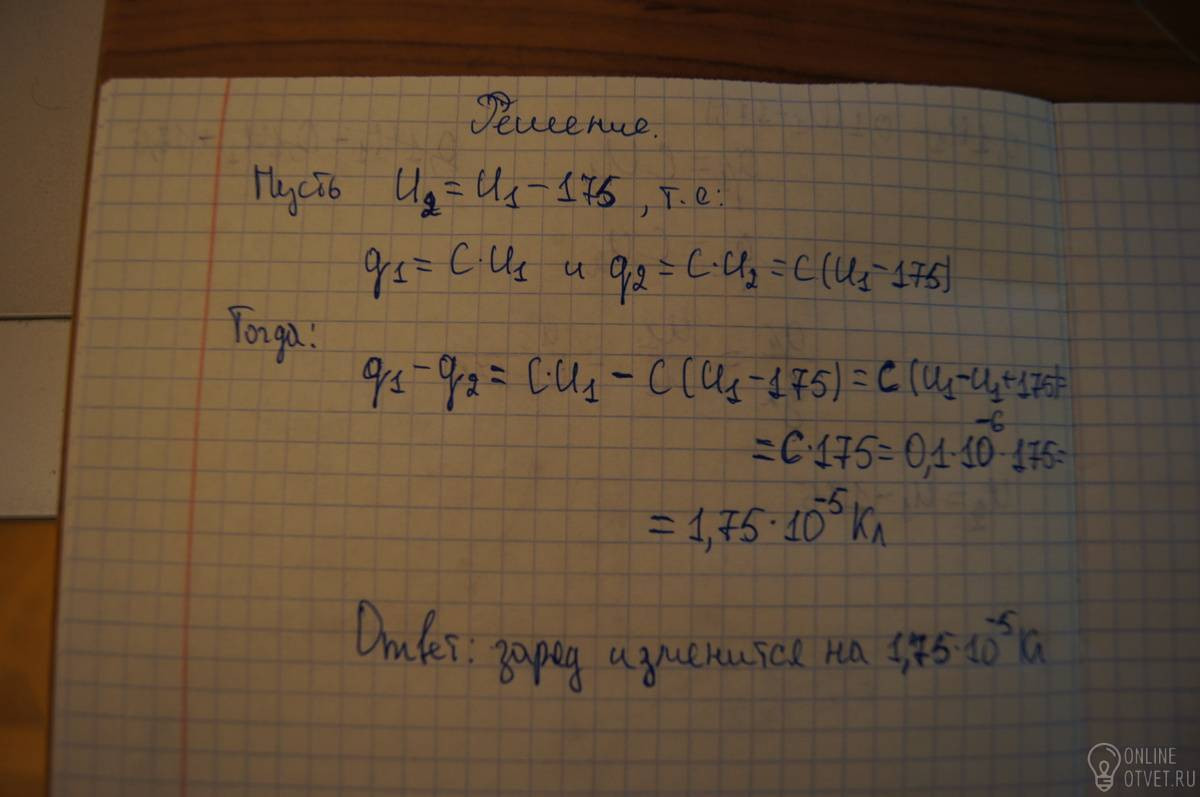 Решение.
Пусть U₂ = U₁ − 175 , т.е:
q₁ = C·U₁ и q₂ = C·U₂ = C(U₁ − 175)
Тогда:
q₁ − q₂ = C·U₁ − C(U₁ − 175) = C(U₁ − U₁ + 175) =
= C·175 = 0,1·10⁻⁶·175 =
= 1,75·10⁻⁵ Кл
Ответ: заряд изменится на 1,75·10⁻⁵ Кл
ONLINE
OTVET.RU